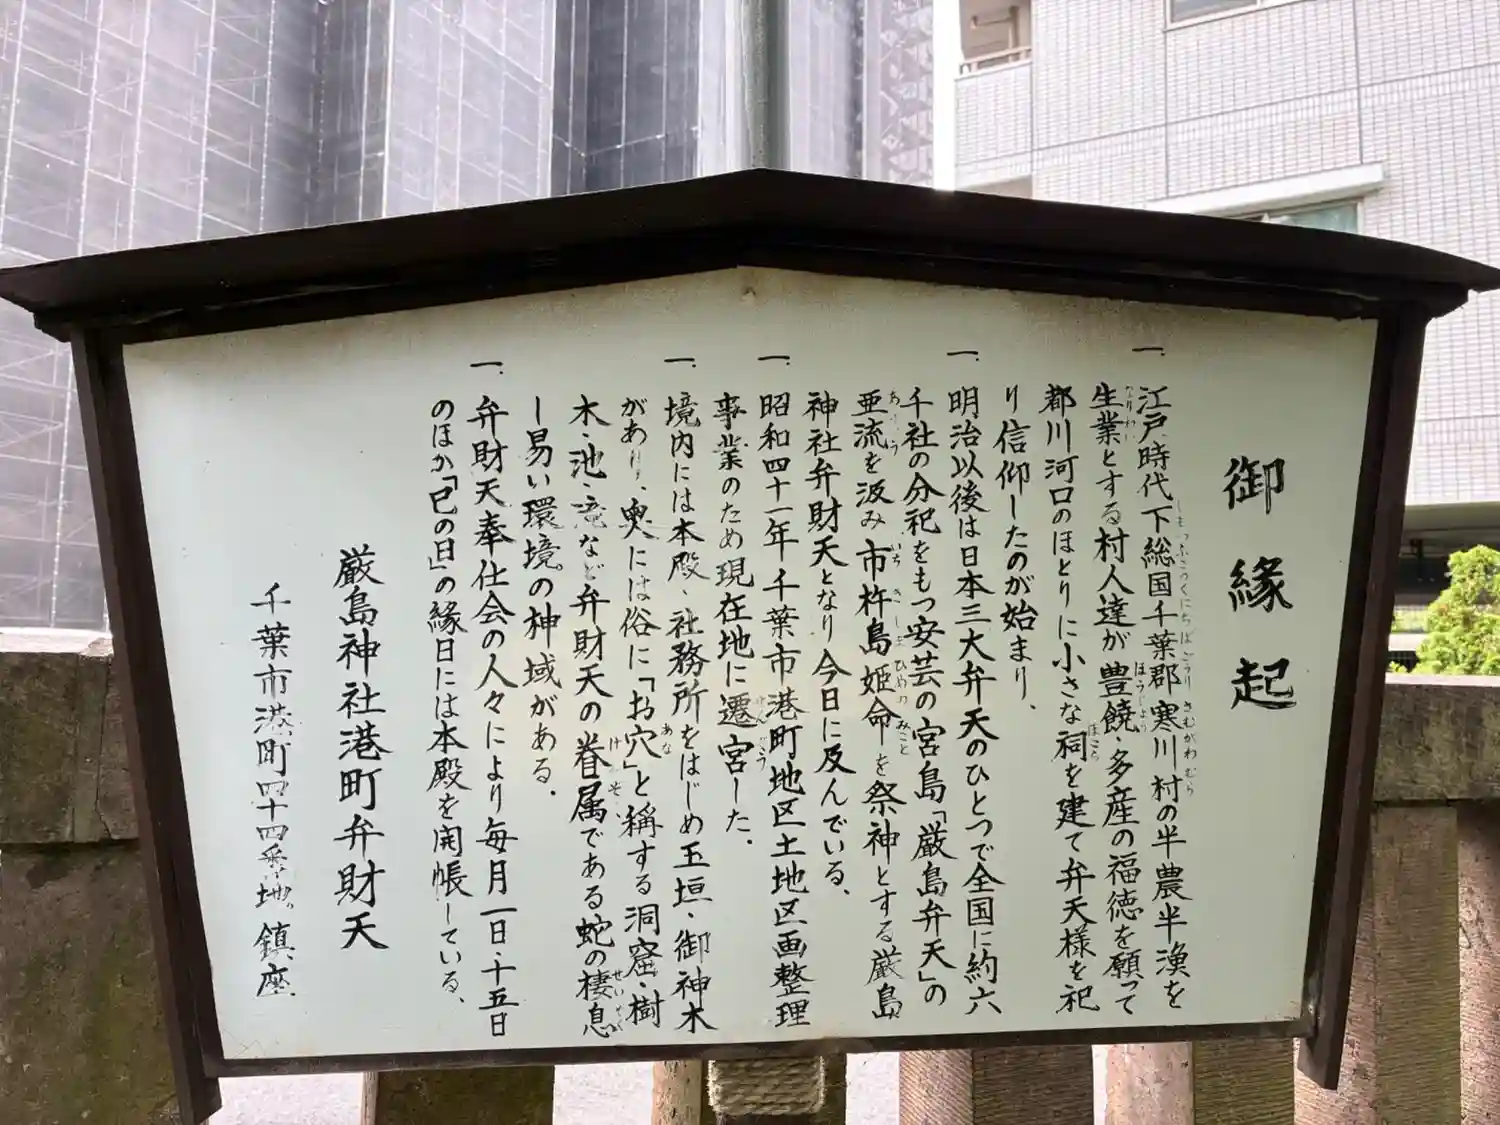 御緣起
一、江戸時代下総国千葉郡寒川村の半農半漁を
生業とする村人達が豊饒・多産の福徳を願って
都川河口のほとりに小さな祠を建て弁天様を祀
り信仰したのが始まり、
一、明治以後は日本三大弁天のひとつで全国に約六
千社の分祀をもつ安芸の宮島「厳島弁天」の
亜流を汲み市杵島姫命を祭神とする厳島
神社弁財天となり今日に及んでいる、
一、昭和四十一年千葉市港町地区土地区画整理
事業のため現在地に遷宮した。
一、境内には本殿、社務所をはじめ玉垣・御神木
があり、奥には俗に「お穴」と稱する洞窟・樹
木・池・滝など弁財天の眷属である蛇の棲息
し易い環境の神域がある。
一、弁財天奉仕会の人々により毎月一日・十五日
のほか「巳の日」の縁日には本殿を開帳している、
厳島神社港町弁財天
千葉市港町四十四番地鎮座